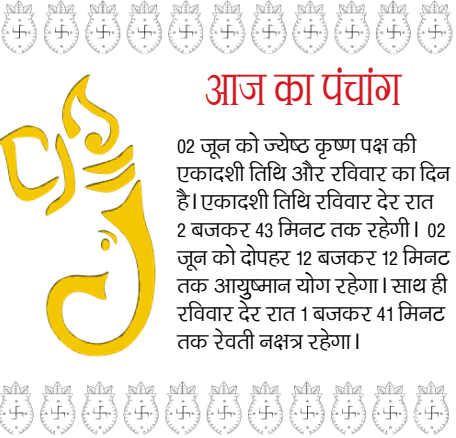 आज का पंचांग
02 जून को ज्येष्ठ कृष्ण पक्ष की
एकादशी तिथि और रविवार का दिन
है। एकादशी तिथि रविवार देर रात
2 बजकर 43 मिनट तक रहेगी। 02
जून को दोपहर 12 बजकर 12 मिनट
तक आयुष्मान योग रहेगा। साथ ही
रविवार देर रात 1 बजकर 41 मिनट
तक रेवती नक्षत्र रहेगा।